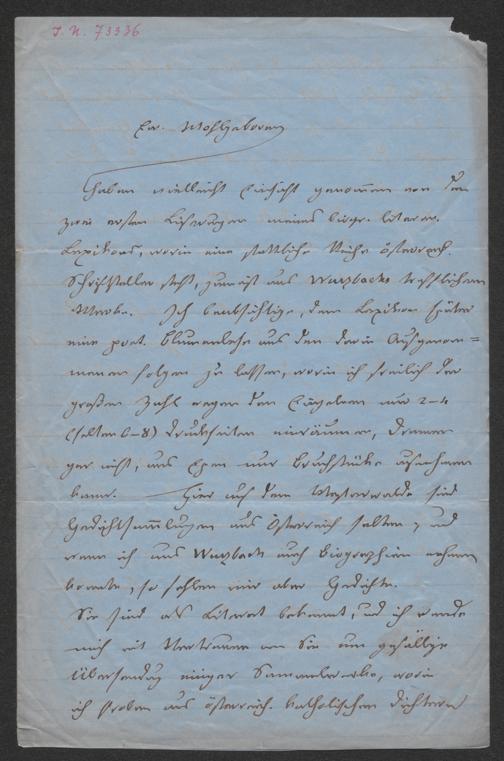 J. N. 73336
Ew. Wohlgeboren
haben vielleicht Einsicht genommen von den
zwei ersten Lieferungen meines biogr. literar.
Lexikons, worin eine stattliche Reihe österreich.
Schriftsteller steht, zumeist aus Wurzbachs trefflichem
Werke. Ich beabsichtige, dem Lexikon später
eine poet. Blumenlese aus den darin Aufgenom=
menen folgen zu lassen, worin ich freilich der
großen Zahl wegen den Einzelnen nur 2–4
(selten 6–8) Druckseiten einräumen, Dramen
gar nicht, aus Epen nur Bruchstücke aufnehmen
kann. — Hier auf dem Westerwalde sind
Gedichtsammlungen aus Österreich selten, und
wenn ich aus Wurzbach auch Biographien nehmen
konnte, so fehlen mir aber Gedichte.
Sie sind als Literat bekannt, und ich wende
mich mit Vertrauen an Sie um gefällige
Übersendung einiger Sammelwerke, worin
ich Proben aus österreich. katholischen Dichtern